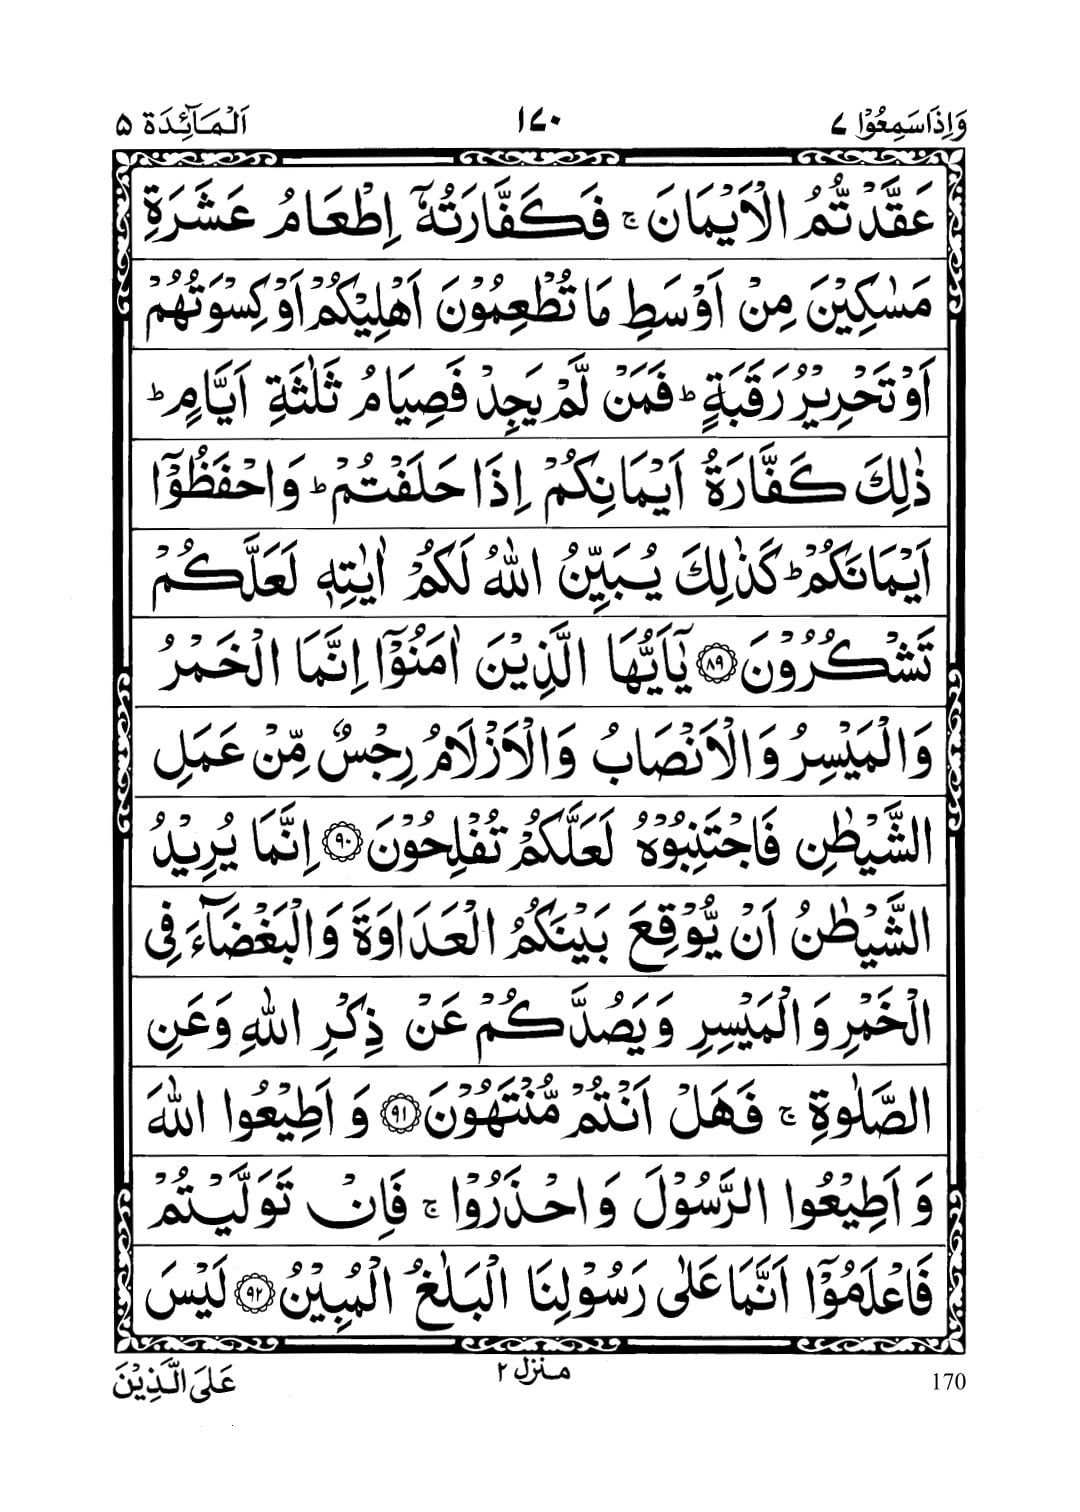 وَاِذَاسَمِعُوْا ۷ ۱۷۰ اَلْمَآئِدَة ۵
عَقَّدْتُّمُ الْاَيْمَانَ ۚ فَكَفَّارَتُهٗۤ اِطْعَامُ عَشَرَةِ
مَسٰكِيْنَ مِنْ اَوْسَطِ مَا تُطْعِمُوْنَ اَهْلِيْكُمْ اَوْ كِسْوَتُهُمْ
اَوْ تَحْرِيْرُ رَقَبَةٍ ؕ فَمَنْ لَّمْ يَجِدْ فَصِيَامُ ثَلٰثَةِ اَيَّامٍ ؕ
ذٰلِكَ كَفَّارَةُ اَيْمَانِكُمْ اِذَا حَلَفْتُمْ ؕ وَاحْفَظُوْۤا
اَيْمَانَكُمْ ؕ كَذٰلِكَ يُبَيِّنُ اللّٰهُ لَكُمْ اٰيٰتِهٖ لَعَلَّكُمْ
تَشْكُرُوْنَ ۸۹ يٰۤاَيُّهَا الَّذِيْنَ اٰمَنُوْۤا اِنَّمَا الْخَمْرُ
وَالْمَيْسِرُ وَالْاَنْصَابُ وَالْاَزْلَامُ رِجْسٌ مِّنْ عَمَلِ
الشَّيْطٰنِ فَاجْتَنِبُوْهُ لَعَلَّكُمْ تُفْلِحُوْنَ ۹۰ اِنَّمَا يُرِيْدُ
الشَّيْطٰنُ اَنْ يُّوْقِعَ بَيْنَكُمُ الْعَدَاوَةَ وَالْبَغْضَآءَ فِى
الْخَمْرِ وَالْمَيْسِرِ وَيَصُدَّكُمْ عَنْ ذِكْرِ اللّٰهِ وَعَنِ
الصَّلٰوةِ ۚ فَهَلْ اَنْتُمْ مُّنْتَهُوْنَ ۹۱ وَاَطِيْعُوا اللّٰهَ
وَاَطِيْعُوا الرَّسُوْلَ وَاحْذَرُوْا ۚ فَاِنْ تَوَلَّيْتُمْ
فَاعْلَمُوْۤا اَنَّمَا عَلٰى رَسُوْلِنَا الْبَلٰغُ الْمُبِيْنُ ۹۲ لَيْسَ
عَلَى الَّذِيْنَ منزل ۲ 170